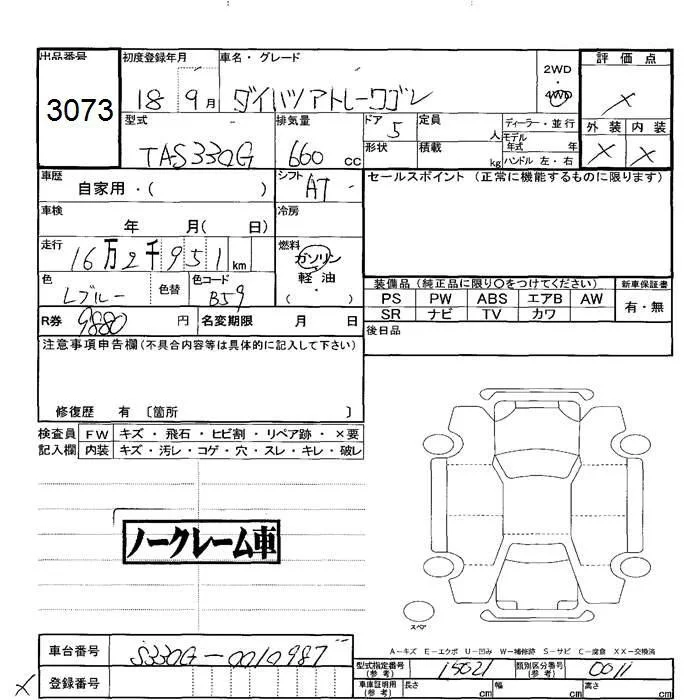 出品番号 初度登録年月 車名・グレード 2WD・4WD 評価点
3073 18 9月 ダイハツアトレーワゴン ×
型式 排気量 ドア 定員 ディーラー・並行 外装 内装
TAS330G 660 cc 5 人 モデル年式 年 × ×
形状 積載 kg ハンドル 左・右
車歴 シフト セールスポイント (正常に機能するものに限ります)
自家用・( ) AT
車検 冷房
年 月( 日)
走行 燃料
16万2千951km ガソリン・軽油
色 色替 色コード ( )
Lブルー B59
装備品 (純正品に限り〇をつけてください) 新車保証書
PS PW ABS エアB AW 有・無
SR ナビ TV カワ
R券 9880 円 名変期限 月 日
後日品
注意事項申告欄(不具合内容等は具体的に記入して下さい)
修復歴 有 〔箇所 〕
検査員 FW キズ・飛石・ヒビ割・リペア跡・×要
記入欄 内装 キズ・汚レ・コゲ・穴・スレ・キレ・破レ
ノークレーム車
スペア
A-キズ E-エクボ U-凹み W-補修跡 S-サビ C-腐食 XX-交換済
車台番号 S330G-0010987
型式指定番号(参考) 15021 類別区分番号(参考) 0011
× 登録番号
車庫証明用(参考) 長さ cm 幅 cm 高さ cm